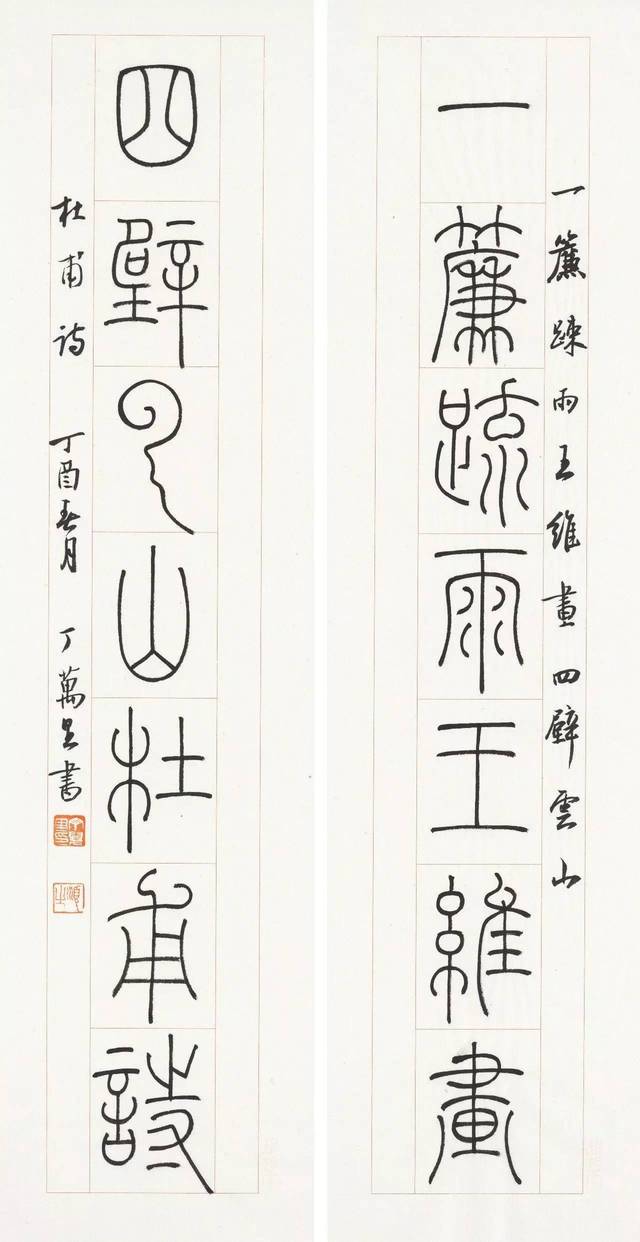 一簾疏雨王維畫
四壁云山杜甫詩
一簾踈雨王維畫四壁雲山
杜甫詩 丁酉春月 丁萬里書